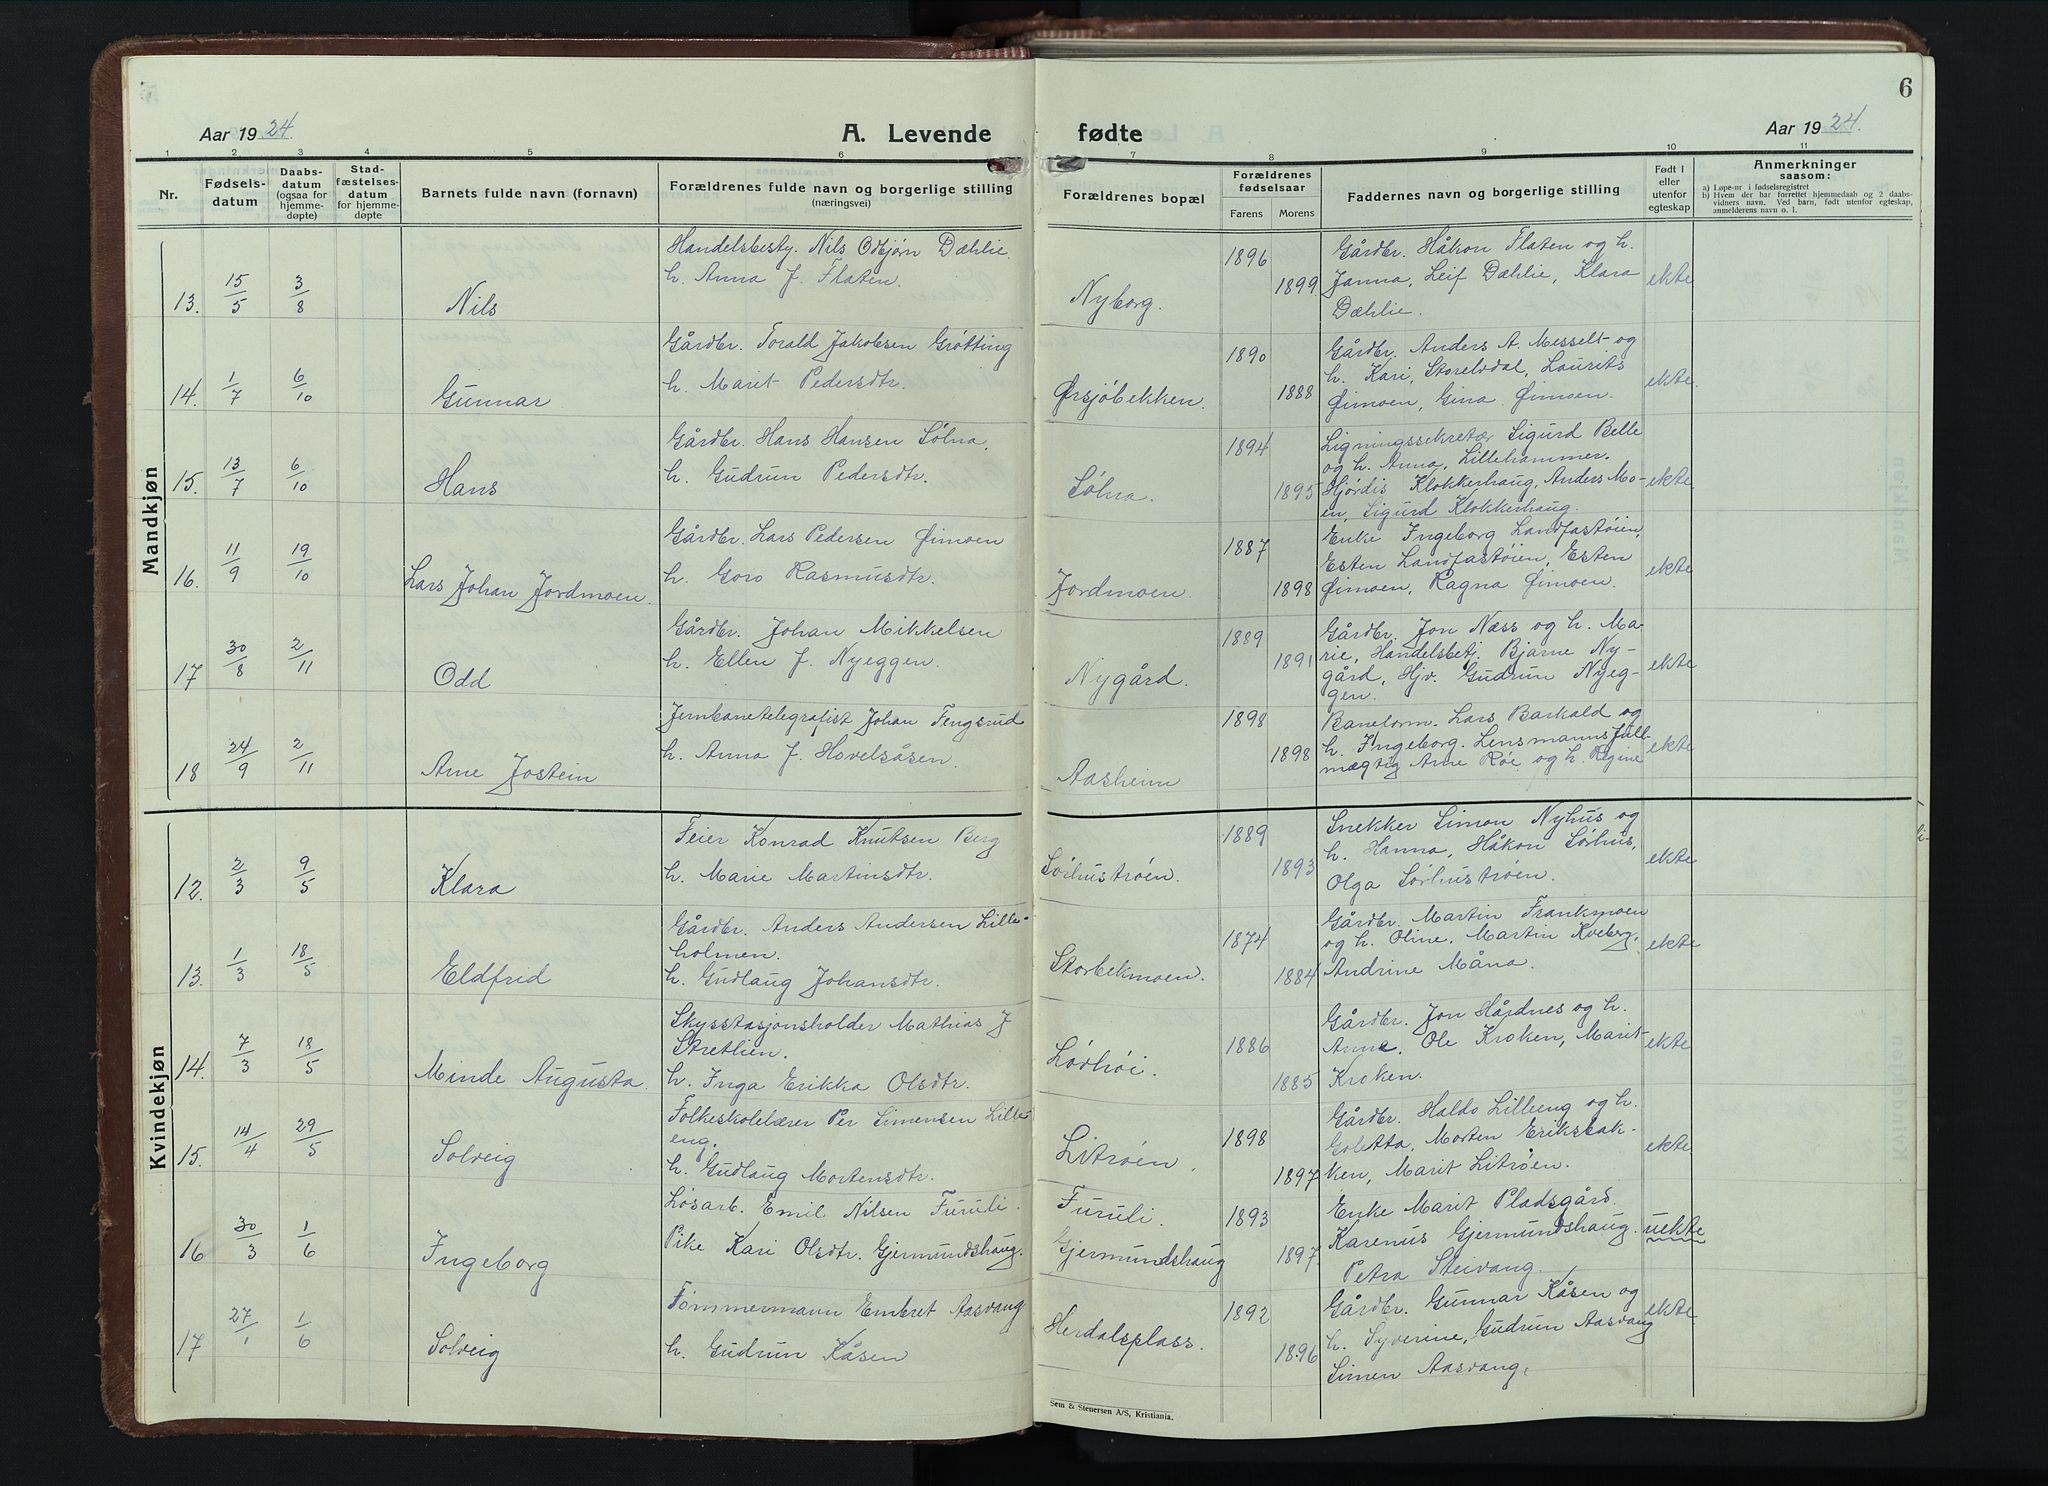 6
Aar 1924.
A. Levende fødte
Aar 1924.
1 2 3 4 5 6 7 8 9 10 11
Nr.
Fødsels-
datum
Daabs-
datum
(ogsaa for
hjemme-
døpte)
Stad-
fæstelses-
datum
for hjemme-
døpte
Barnets fulde navn (fornavn)
Forældrenes fulde navn og borgerlige stilling
(næringsvei)
Forældrenes bopæl
Forældrenes
fødselsaar
Farens Morens
Faddernes navn og borgerlige stilling
Født i
eller
utenfor
egteskap
Anmerkninger
saasom:
a) Løpe-nr i fødselsregistret
b) Hvem der har forrettet hjemmedaab og 2 daabs-
vidners navn. Ved barn, født utenfor egteskap,
anmelderens navn o. l.
Mandkjøn
13. 15/5 3/8 Nils
Handelsbesty. Nils Odbjørn Dæhlie.
h. Anna J. Flaten.
Nyborg.
1896
1899
Gårdbr. Håkon Flaten og h.
Janna, Leif Dæhlie, Klara
Dæhlie.
ekte
14. 1/7 6/10 Gunnar
Gårdbr. Torald Jakobsen Grøtting
h. Marit Pedersdtr.
Ørsjøbekken.
1890
1888
Gårdbr. Anders A. Messelt og
h. Kari, Storelvdal, Laurits
Øimoen, Gina Øimoen.
ekte.
15. 13/7 6/10 Hans
Gårdbr. Hans Hansen Sølna.
h. Gudrun Pedersdtr.
Sølna.
1894
1895
Ligningssekretær Sigurd Belle
og h. Anna, Lillehammer.
Hjørdis Klokkerhaug, Anders Mo-
en, Sigurd Klokkerhaug.
ekte
16. 11/9 19/10 Lars Johan Jordmoen.
Gårdbr. Lars Pedersen Øimoen
h. Goro Rasmusdtr.
Jordmoen.
1887
1898
Enke Ingeborg Landfastøien,
Esten Landfastøien, Esten
Øimoen, Ragna Øimoen.
ekte
17 30/8 2/11 Odd
Gårdbr. Johan Mikkelsen
h. Ellen J. Nyeggen.
Nygård.
1889
1891
Gårdbr. Jon Næss og h. Ma-
rie, Handelsbetj. Bjarne Ny-
gård, Hjv. Gudrun Nyeg-
gen.
ekte
18 24/9 2/11 Arne Jostein
Jernbanetelegrafist Johan Fengsrud
h. Anna J. Hovelsåsen.
Aasheim
1898
1898
Baneform. Lars Barkald og
h. Ingeborg. Lensmannsfull-
mægtig Arne Røe og h. Regine
ekte
Kvindekjøn
12. 2/3 9/5 Klara
Feier Konrad Knutsen Berg
h. Marie Martinsdtr.
Sørhustrøen.
1889
1893
Snekker Simon Nyhus og
h. Hanna, Håkon Sørhus,
Olga Sørhustrøen.
ekte
13. 1/3 18/5 Eldfrid
Gårdbr. Anders Andersen Lille-
holmen.
h. Gudlaug Johansdtr.
Storbekmoen.
1874
1884
Gårdbr. Martin Frankmoen
og h. Oline, Martin Kveberg,
Andrine Måna.
ekte
14. 7/3 18/5 Minde Augusta.
Skysstasjonsholder Mathias J
Stretlien.
h. Inga Erikka Olsdtr.
Lørhøi.
1886
1885
Gårdbr. Jon Hårdnes og h.
Anne, Ole Kroken, Marit
Kroken.
ekte
15. 14/4 29/5 Solveig
Folkeskolelærer Per Simensen Lille-
eng.
h. Gudlaug Mortensdtr.
Litrøen.
1898
1897
Gårdbr. Haldo Lilleeng og h.
Goletta, Morten Eriksbak-
ken, Marit Litrøen.
ekte
16 30/3 1/6 Ingeborg
Løsarb. Emil Nilsen Furuli.
Pike Kari Olsdtr. Gjermundshaug.
Furuli.
Gjermundshaug
1893
1897.
Enke Marit Pladsgård.
Karenus Gjermundshaug.
Petra Steivang.
uekte
17 27/1 1/6 Solveig
Tømmermann Embret Aasvang
h. Gudrun Kåsen
Herdalsplass.
1892
1896
Gårdbr. Gunnar Kåsen og
h. Syverine, Gudrun Aasvang
Simen Aasvang.
ekte
Sem & Stenersen A/S, Kristiania.